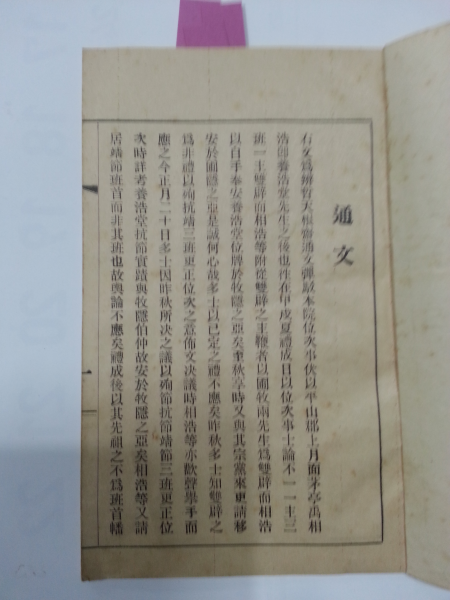 通文
右文爲辨育天根齋通文彈毆本院位次事伏以平山郡上月面茅亭禹相
浩卽養浩堂先生之後也往在甲戌夏禮成日以位次事士論不一一主三
班一主雙壁而相浩等附從雙壁之主鞭者以圃牧兩先生爲雙壁而相浩
以白手奉安養浩堂位牌於牧隱之亞矣奎秋享時又與其宗黨來更請移
安於圃隱之亞是誠何心哉多士以已定之禮不應矣昨秋多士知雙壁之
爲非禮以殉抗靖三班更正位次之意佈文决議時相浩等亦歡聲擧手而
應之今正月二十日多士因昨秋所决之議以殉節抗節靖節三班更正位
次時詳考養浩堂抗節實蹟與牧隱伯仲故安於牧隱之亞矣相浩等又請
居靖節班首而非其班也故輿論不應矣禮成後以其先祖之不爲班首幡
一